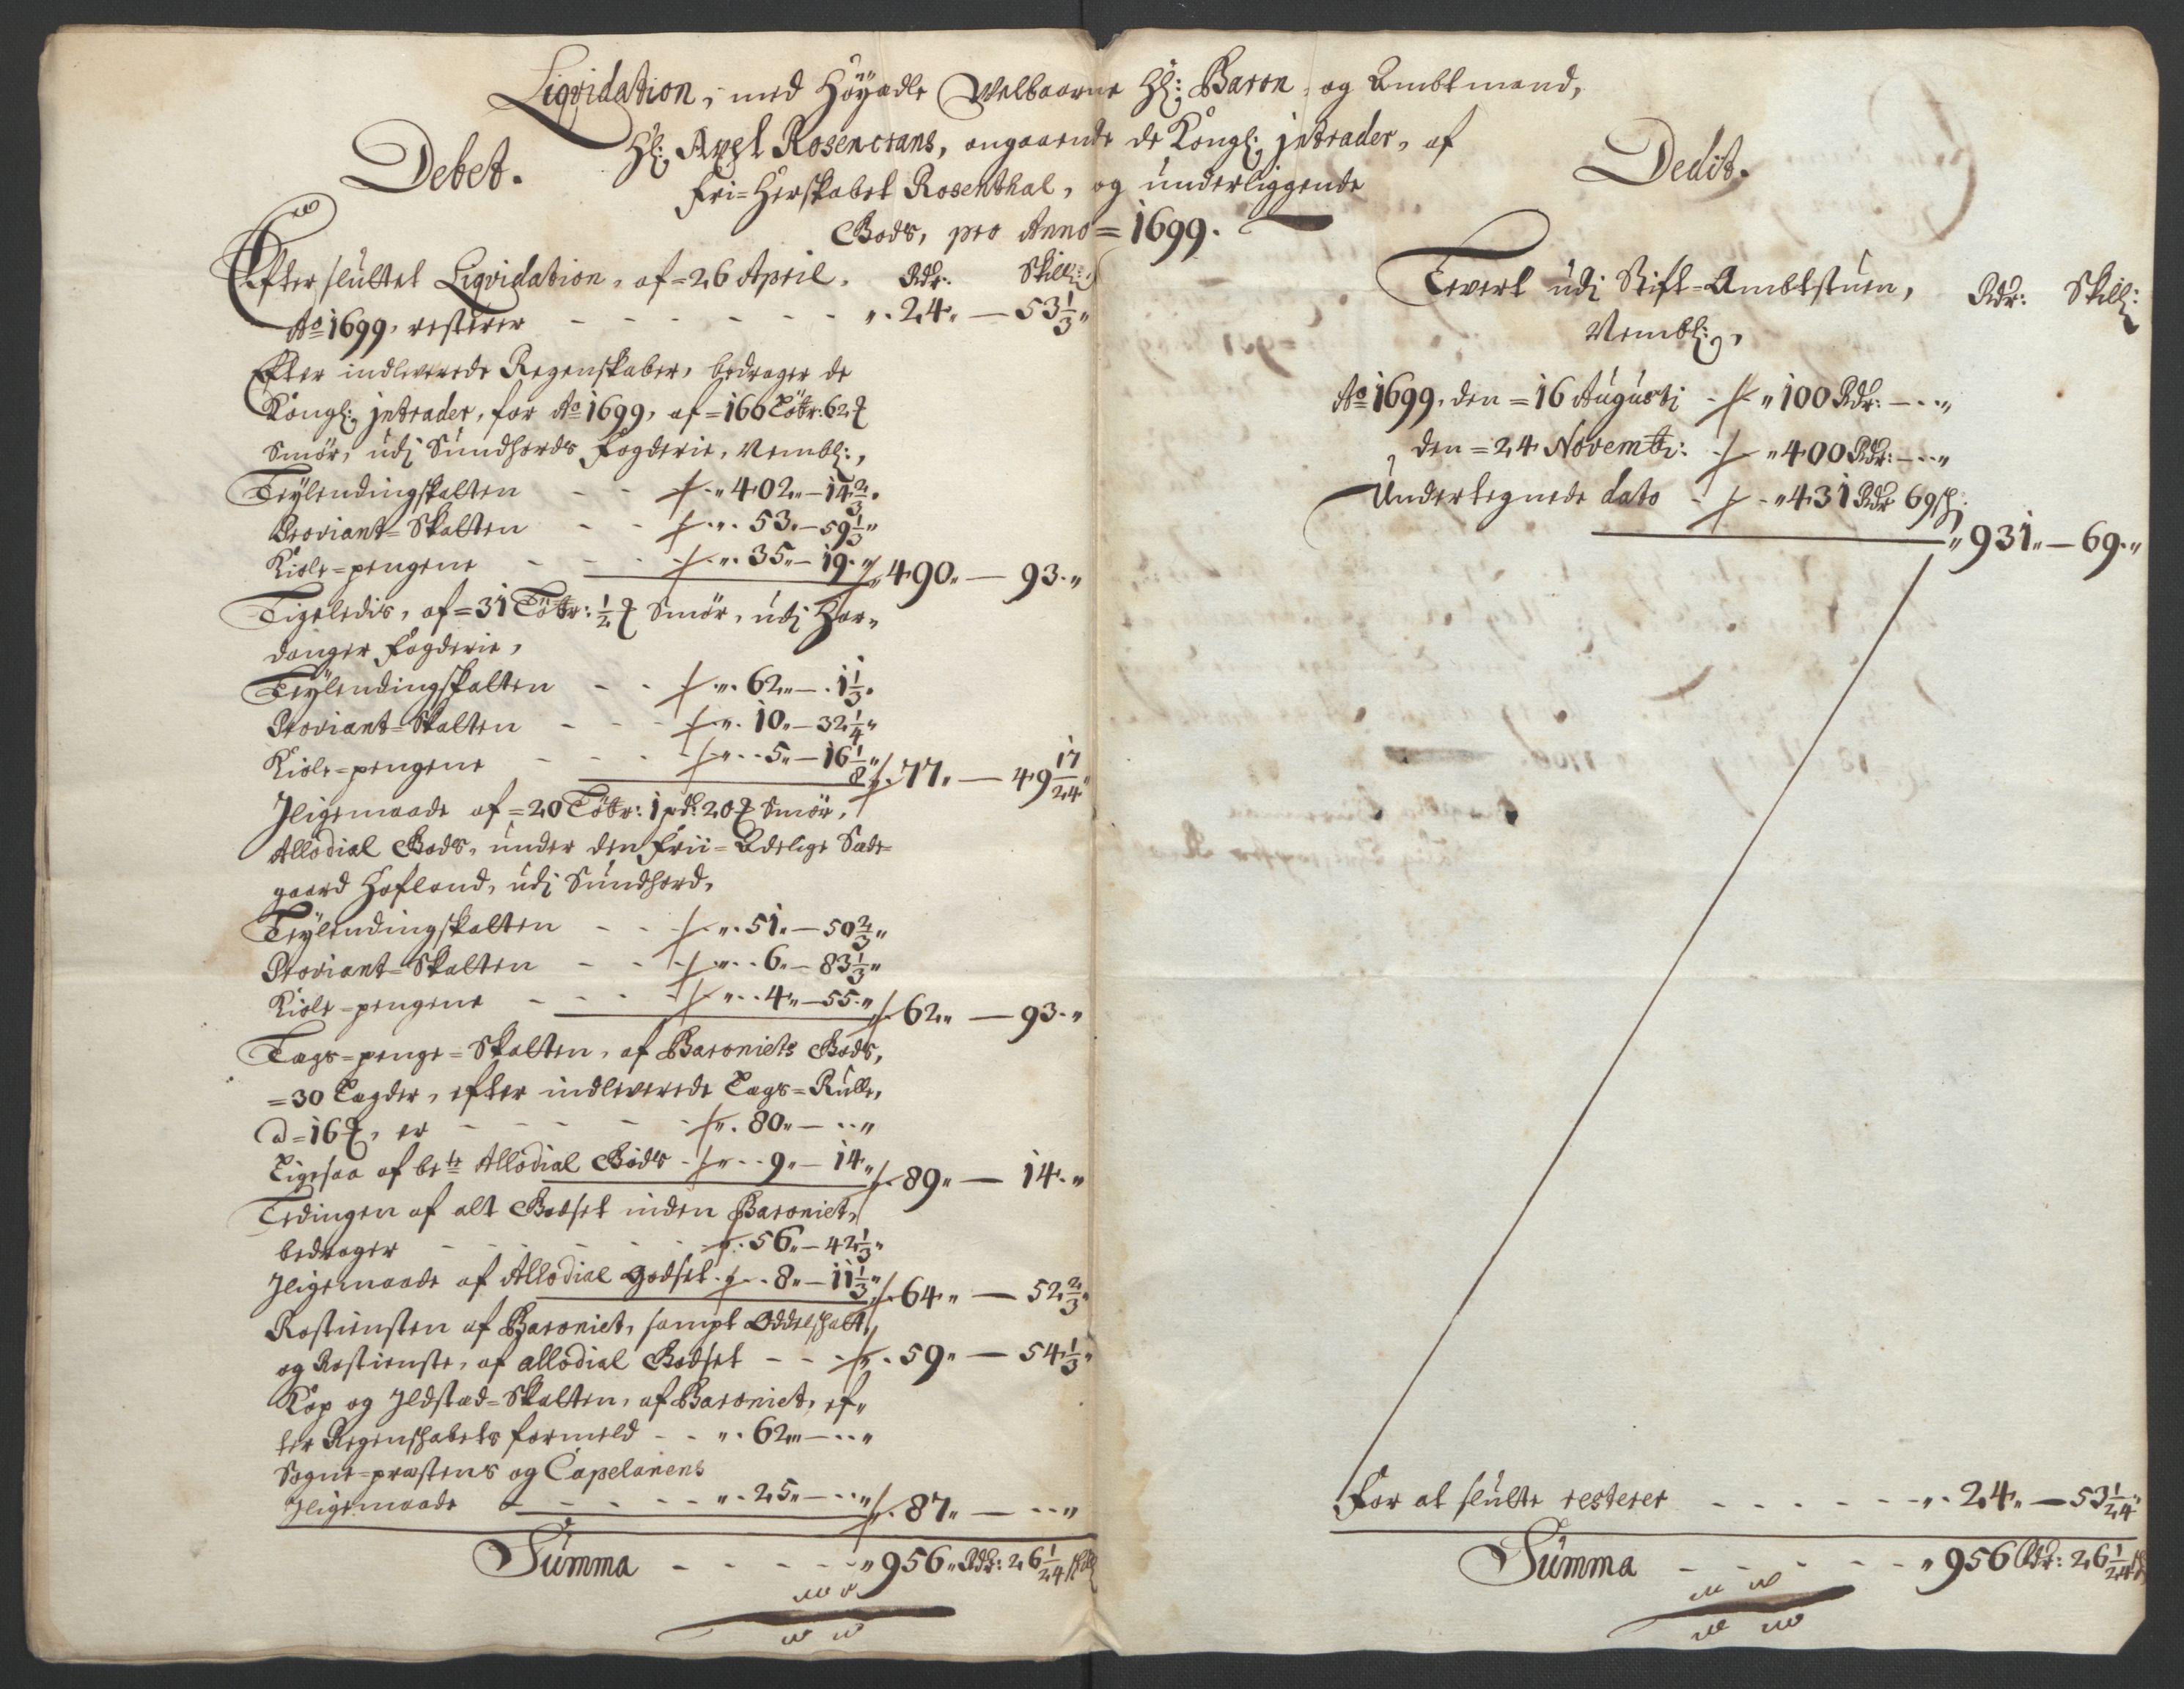 Liqvidation, med Höyædle Welbaarne Hl: Baron, og Ambtmand,
Hl: Axel Rosencrans, angaaende de Kongl: jntrader, af
Fri=Herskabet Rosenthal, og underliggende
Gods, pro Anno = 1699.
Debet.
Efter sluttet Liqvidation, af = 26 April. Rdr: Skill:
Ao 1699, resterer - - - - - - " 24 " — 53 1/3 "
Efter indleverede Regenskaber, bedrager de
Kongl: jntrader, for Ao 1699, af = 166 Löbr: 62 ℔
Smör, udj Sundhords Fogderie, Nembl:,
Leylendingskatten - - " 402 " — 14 2/3 "
Proviant=Skatten - - " 53 " — 59 1/3 "
Kiole=pengene - - - " 35 " — 19 " " 490 " — 93 "
Ligeledis, af = 31 Löbr: 1/2 ℔ Smör, udj Har=
danger Fogderie,
Leylendingskatten - - " 62 " — 1 1/3 "
Proviant=Skatten - - - " 10 " — 32 1/4 "
Kiole=pengene - - - - " 5 " — 16 1/8 " " 77 " — 49 17/24 "
Jligemaade af = 20 Löbr: 1 pd: 20 ℔ Smör,
Allodial Gods, under den Frii=Adelige Sæde=
gaard Hafland, udj Sundhord,
Leylendingskatten - - " 51 " — 50 2/3 "
Proviant=Skatten - - " 6 " — 83 1/3 "
Kiole=pengene - - - - " 4 " — 55 " " 62 " — 93 "
Lægs=penge=Skatten, af Baroniets Gods,
= 30 Lægder, efter indleverede Lægs=Rulle,
a = 16 ℔, er - - - - - " 80 " — - - "
Ligesaa af bete Allodial Gods - " 9 " — 14 " " 89 " — 14 "
Ledingen af alt Godset inden Baroniet,
bedrager - - - - - " 56 " — 42 1/3 "
Jligemaade af Allodial godset - " 8 " — 11 1/3 " " 64 " — 52 2/3 "
Rostiensten af Baroniet, sampt Oddelskatt,
og Rostienste, af allodial Godset - - - " 59 " — 54 1/3 "
Kop og Jldsted=Skatten, af Baroniet, ef=
ter Regenskabets formeld - - " 62 " — - - "
Sogne=præstens og Capelanens
Jligemaade - - - - - " 25 " — - - " " 87 " — - - "
Summa - - - - - " 956 " Rdr: 26 1/24 skill
Dedit.
Levert udj Stift=Ambtstuen, Rdr: Skill:
Nembl:,
Ao 1699, den = 16 Augustj - " 100 Rdr: — - - "
den = 24 Novembr: - " 400 Rdr: — - - "
Undertegnede dato - " 431 Rdr 69 sk
" 931 " — 69 "
For at slutte resterer - - - - - - " 24 " — 53 1/24 "
Summa - - - - - " 956 Rdr: 26 1/24 sk